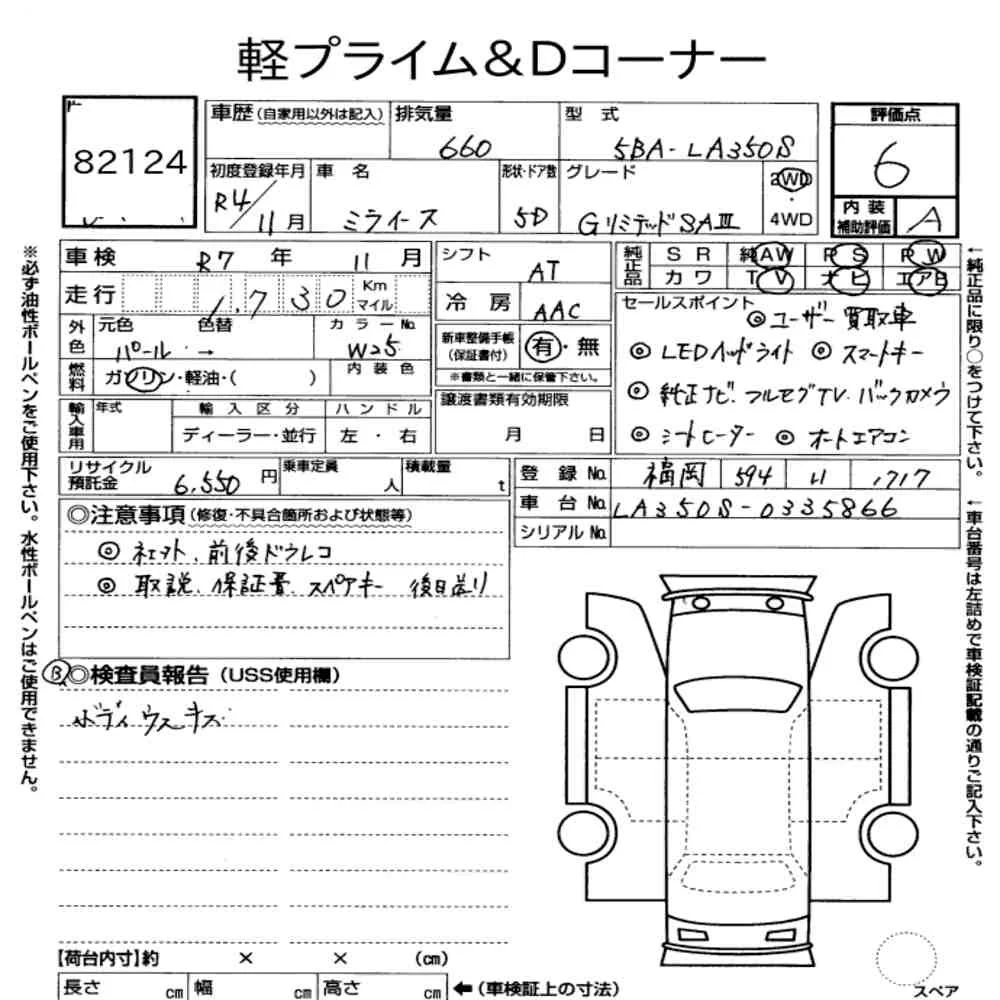 軽プライム&Dコーナー
82124
車歴(自家用以外は記入)
排気量
660
型 式
5BA-LA350S
評価点
6
初度登録年月
R4/11月
車 名
ミライース
形状・ドア数
5D
グレード
GリミテッドSAⅢ
2WD
・
4WD
内 装
補助評価
A
車検 R7 年 11 月
シフト
AT
純正品
SR 純AW PS PW
カワ TV ナビ エアB
走行 1,730 Km マイル
冷房
AAC
セールスポイント
◎ユーザー買取車
◎LEDヘッドライト ◎スマートキー
◎純正ナビ.フルセグTV.バックカメラ
◎シートヒーター ◎オートエアコン
外色
元色 色替 カラーNo.
パール → W25
新車整備手帳
(保証書付)
有・無
※書類と一緒に保管下さい。
燃料
ガソリン・軽油・( )
内装色
譲渡書類有効期限
月 日
輸入車用
年式
輸入区分
ディーラー・並行
ハンドル
左・右
リサイクル
預託金
6,550円
乗車定員
人
積載量
t
登録No. 福岡 594 い 1717
車台No. LA350S-0335866
シリアルNo.
◎注意事項(修復・不具合箇所および状態等)
◎ 前後ドラレコ
◎ 取説、保証書、スペアキー 後日送り
B ◎検査員報告(USS使用欄)
ボディウスキズ
【荷台内寸】約 × × (cm)
長さ cm 幅 cm 高さ cm ←(車検証上の寸法)
スペア
※必ず油性ボールペンをご使用下さい。水性ボールペンはご使用できません。
←純正品に限り○をつけて下さい。
←車台番号は左詰めで車検証記載の通りご記入下さい。